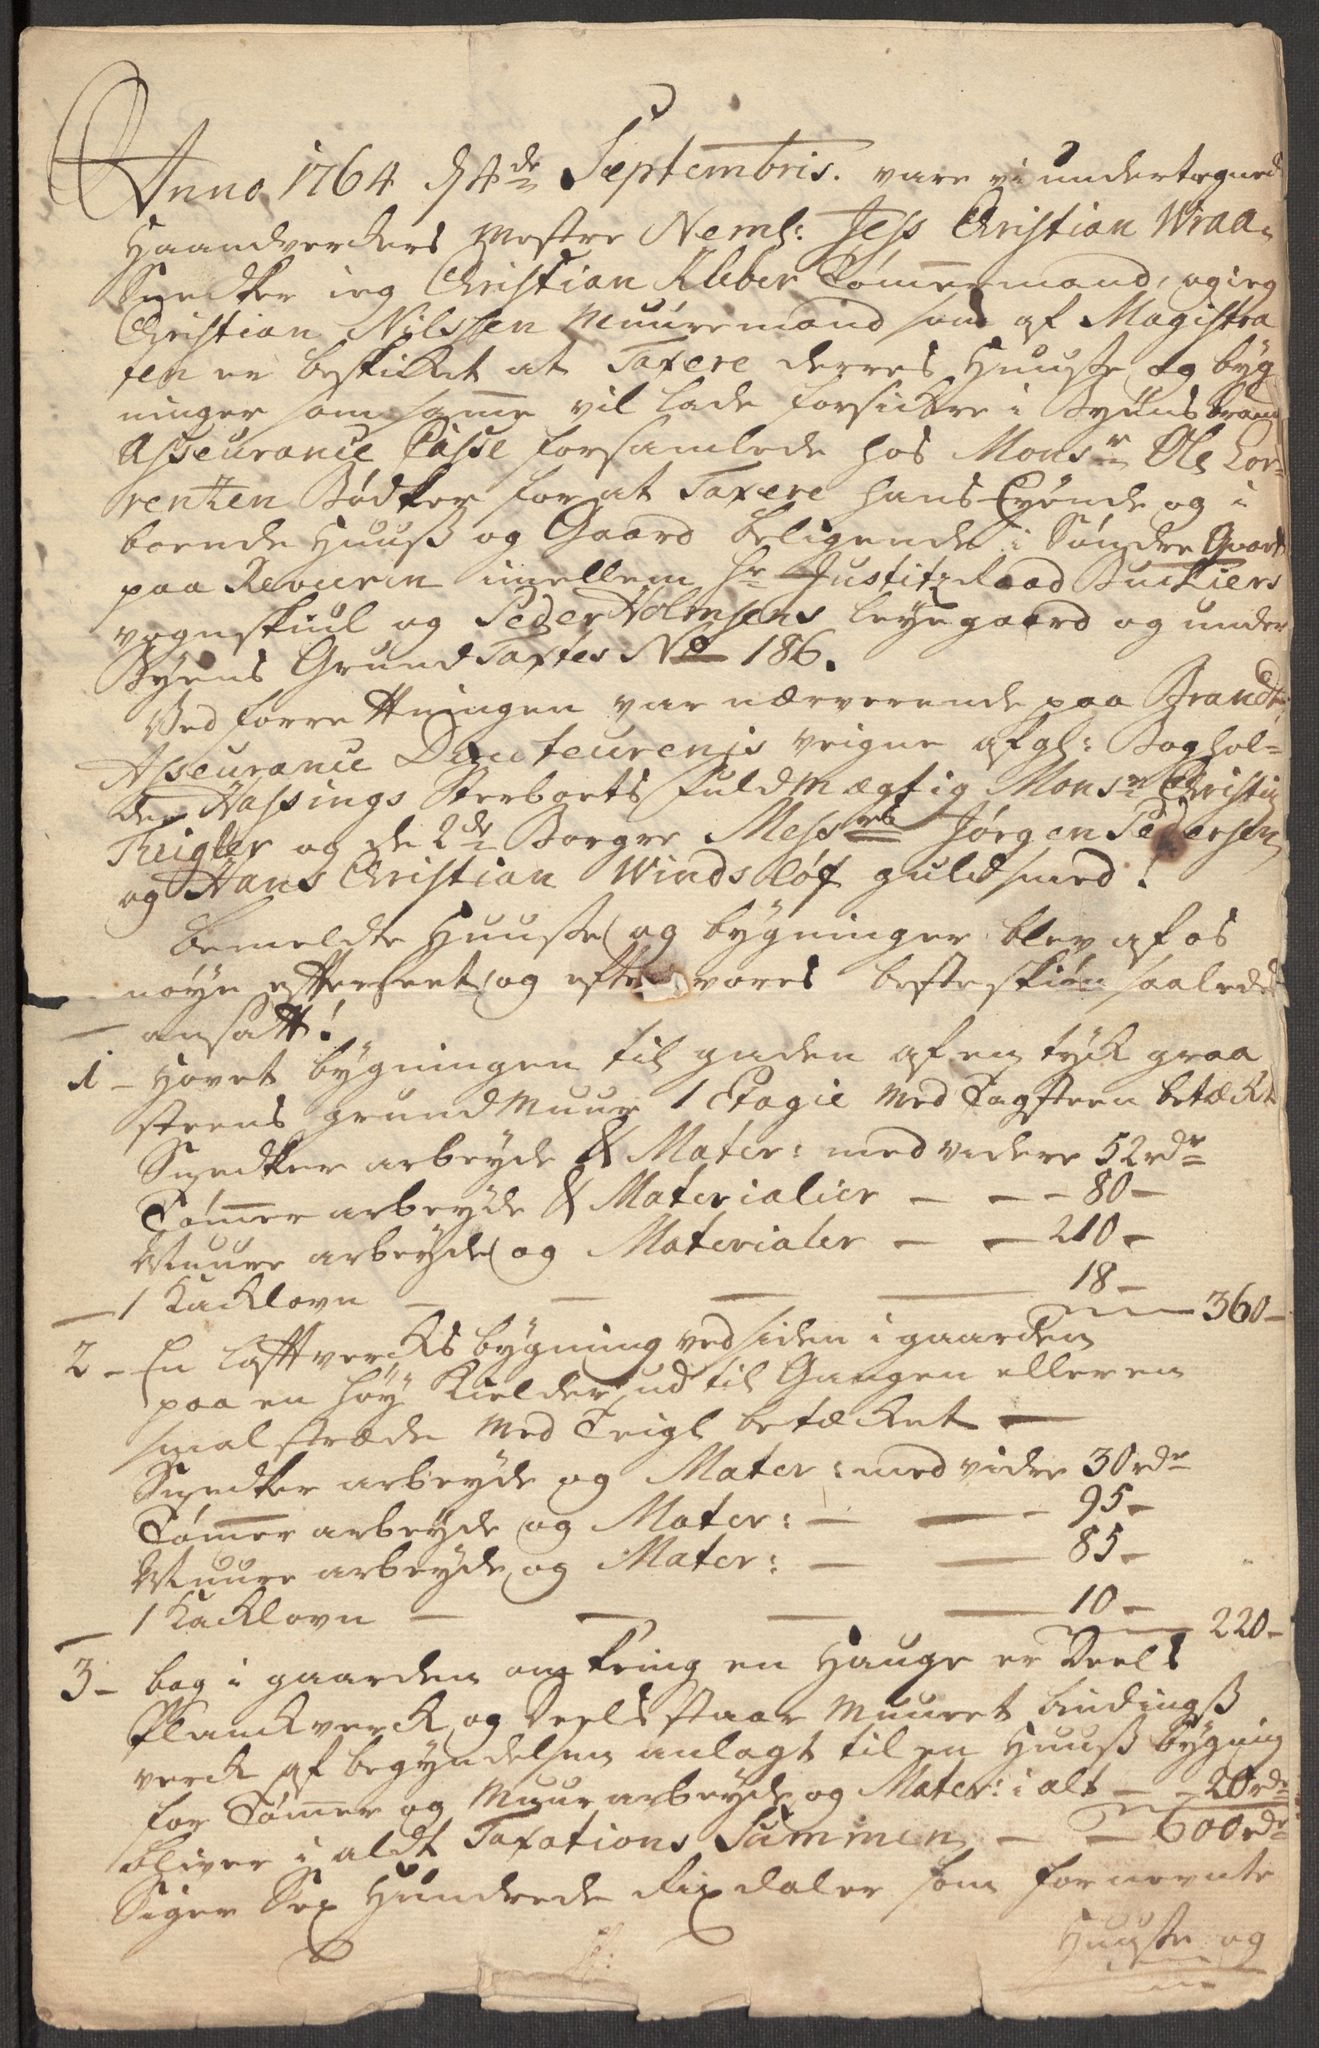 Anno 1764 d 4de Septembris. vare vi undertegned
Haandverkers Mestre Neml: Jess Christian Wraa
Snedker ieg Christian Kleber Tømmermand, og ieg
Christian Nilssen Muuremand som af Magistra
ten er beskikket at Taxere derres Huuse og byg
ninger som samme vil lade forsickre i Byens brand
Asseurance Casse forsamlede hos Monsr Ole Lor-
rentzen Bødker for at Taxere hans Eyende og i
boende Huuss og Gaard beligende i Søndre Qvart
paa imellem Hr Justitzraad
vognskiul og Peder Holmsens leye gaard og under
Byens Grund Taxtes No 186.
Ved forrettningen var nærverende paa Brandt
Asseurance veigne afgl: Boghol-
der Hassings Sterboets fuldmægtig Monsr Christia
Teigler og de 2de Borgere Messrs Jørgen Pedersen
og Hans Christian Windsløf guldsmed!
Bemeldte Huuse og bygninger blev af os
nøye efterseet og efter vores beste skiøn saaledes
ansatt!
1 - Hovet bygningen til gaden af en tyck graa
steens grundmuur 1 Etagie med Tagsteen betæckt
Snedker arbeyde & Mater: med videre 52 rdr
Tømmer arbeyde & Materialier - - - 80 -
Muure arbeyde og Materialer - - 210 -
- 1 Kacklovn - - - - 18 - 360 -
2 - En lafttvercks bygning ved siden i gaarden
paa en høy Kielder ud til Gangen eller en
smal stræde med Teigl betæcket -
Snedker arbeyde og Mater: med vidre 30 rdr
Tømmer arbeyde og Mater: - - - 95 -
Muure arbeyde og Mater: - - 85 -
- 1 Kacklovn - - - - 10 - 220 -
3 - bag i gaarden omkring en Hauge er Deels
Planckverck og Deels staar Muuret bindings
verck af begyndelsen anlagt til en Huuss bygning
for Tømmer og Muur arbeyde og Mater: i alt - - 20 rdr
bliver i aldt Taxations Summen - - 600 rdr
Siger Sex Hundrede Rixdaler som fornevnte
Huuse og